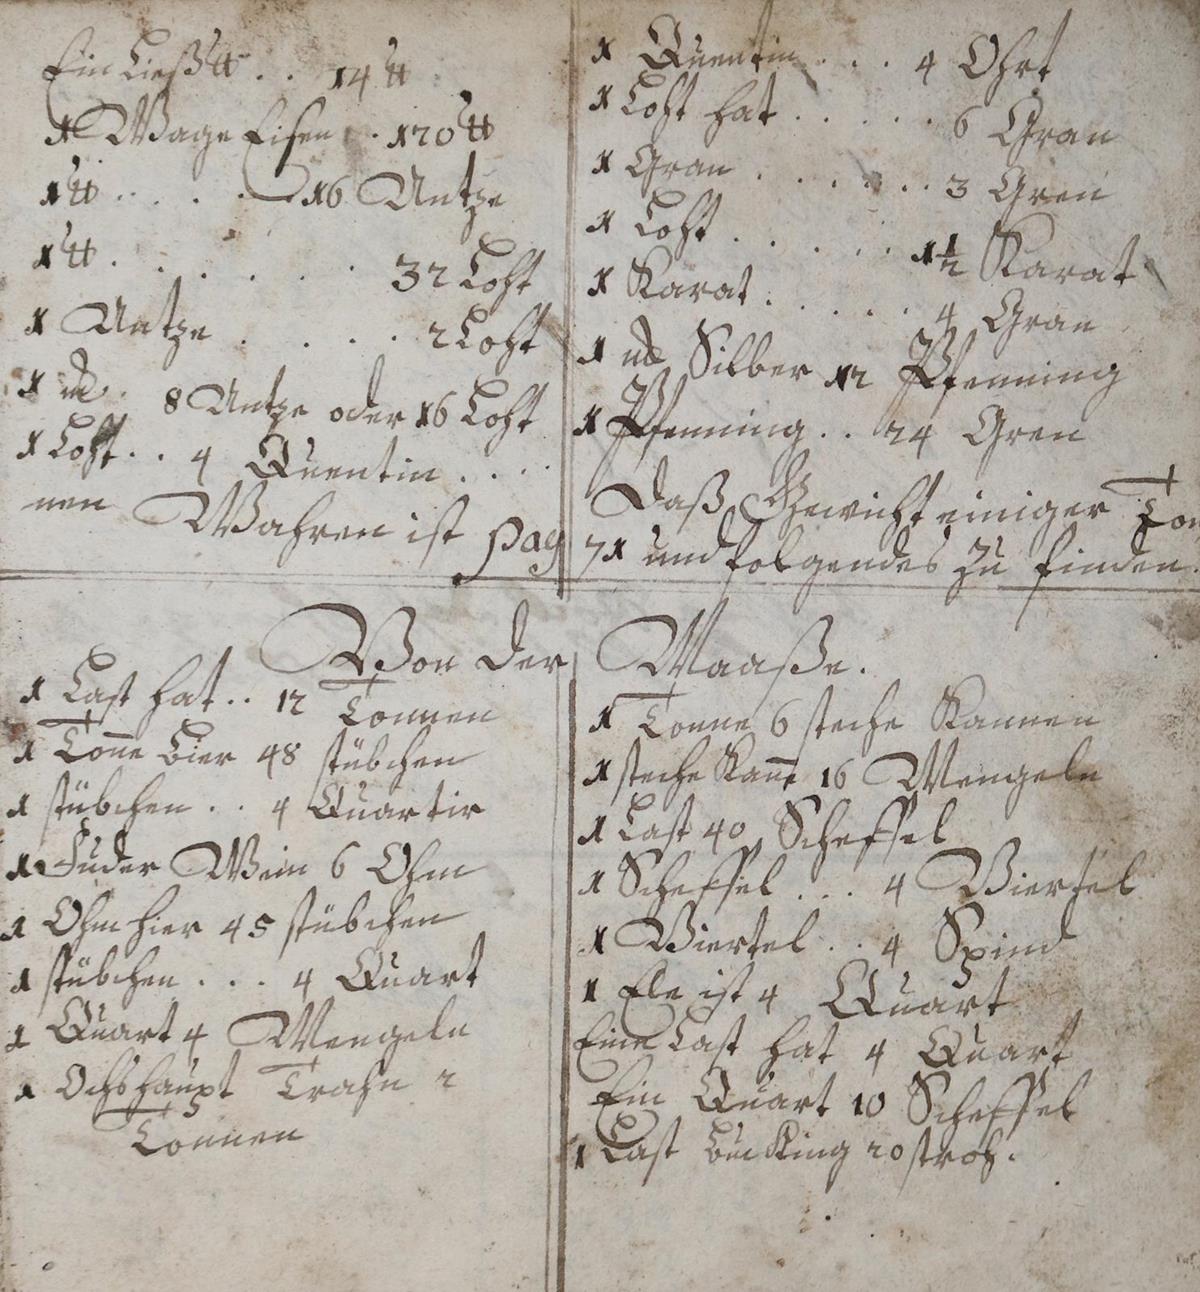 Ein Ließ ℔ . . 14 ℔
1 Wage Eisen . 120 ℔
1 ℔ . . . . 16 Untze
1 ℔ . . . . . . 32 Loht
1 Untze . . . . 2 Loht
1 . 8 Untze oder 16 Loht
1 Loht . . 4 Quentin . . . .
1 Quentin . . . 4 Ohrt
1 Loht hat . . . . . 6 Gran
1 Gran . . . . . . 3 Gren
1 Loht . . . . . . 1½ Karat
1 Karat . . . . . 4 Gran
1 Silber 12 Pfenning
1 Pfenning . . 24 Gren
Daß Gewicht einiger Ton
nen Wahren ist pag
71 und folgendes zu finden.
Von der Maaße.
1 Last hat . . 12 Tonnen
1 Toñe Bier 48 stübchen
1 stübchen . . 4 Quartir
1 Fuder Wein 6 Ohm
1 Ohm hier 45 stübchen
1 stübchen . . . 4 Quart
1 Quart 4 Mengeln
1 Ochshaupt Trahn 2
Tonnen
1 Tonne 6 steche Kannen
1 steche Kañe 16 Mengeln
1 Last 40 Scheffel
1 Scheffel . . . 4 Viertel
1 Viertel . . 4 Spind
1 Ele ist 4 Quart
Eine Last hat 4 Quart
Ein Quart 10 Scheffel
1 Last Bücking 20 stroh.